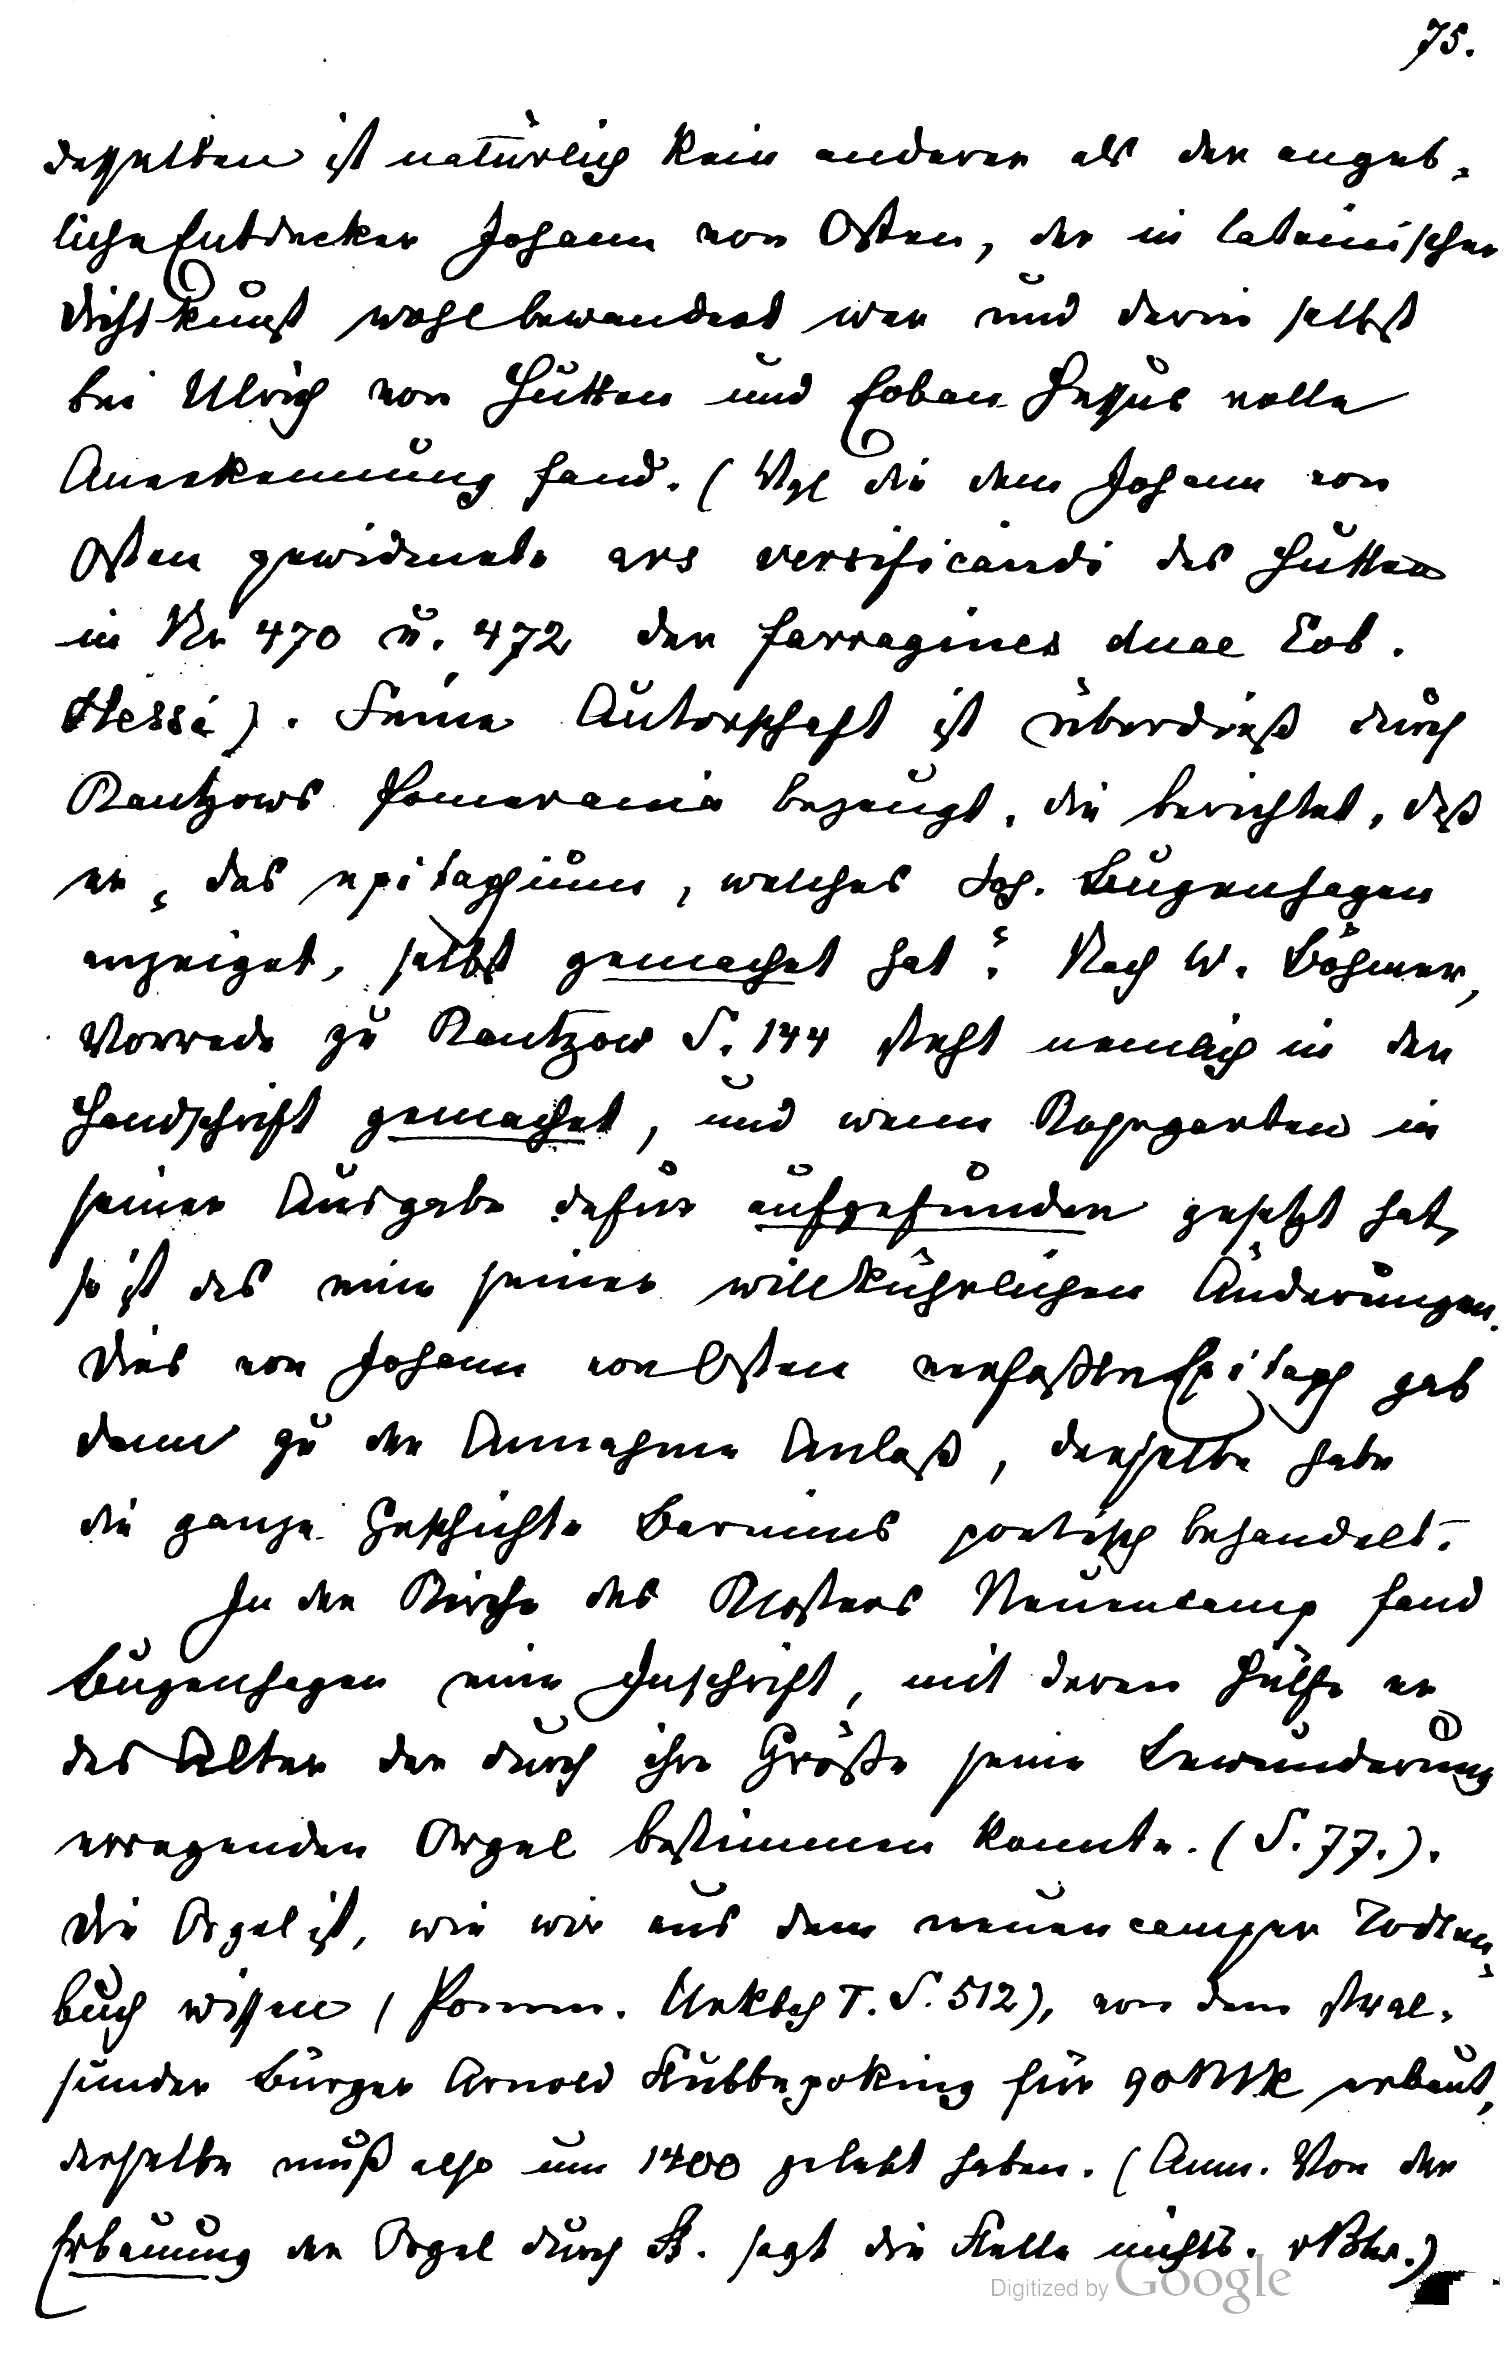 75.
desselben ist natürlich kein anderer als der angeb-
liche Entdecker Johann von Osten, der in lateinischer
Dichtkunst wohlbewandert war und darin selbst
bei Ulrich von Hutten und Eoban Hessus volle
Anerkennung fand. (Vgl die dem Johann von
Osten gewidmete ars versificandi des Hutten
in Nr 470 u. 472 der farragines duae Eob.
Hessi). Seine Autorschaft ist überdieß durch
Kantzows Pomerania bezeugt, die berichtet, daß
er „das epitaphium, welches Joh. Bugenhagen
anzeiget, selbst gemachet hat“. Nach W. Böhmer,
Vorrede zu Kantzow S. 144 steht nemlich in der
Handschrift gemachet, und wenn Kosegarten in
seiner Ausgabe dafür aufgefunden gesetzt hat,
so ist das eine seiner willkührlichen Änderungen.
Dies von Johann von Osten verfaßte Epitaph gab
dann zu der Annahme Anlaß, derselbe habe
die ganze Geschichte Barnims poetisch behandelt.
In der Kirche des Klosters Neuencamp fand
Bugenhagen eine Inschrift, mit deren Hülfe er
das Alter der durch ihre Größe seine Bewunderung
erregenden Orgel bestimmen konnte. (S. 77.).
Die Orgel ist, wie wir aus dem neuencamper Todten-
buch wissen (Pomm. Urkbch I. S. 512), von dem stral-
sunder Bürger Arnold Stubbepoking für 90 Mk erbaut,
derselbe muß also um 1400 gelebt haben. (Anm. Von der
Erbauung der Orgel durch St. sagt die Stelle nichts.
Digitized by Google